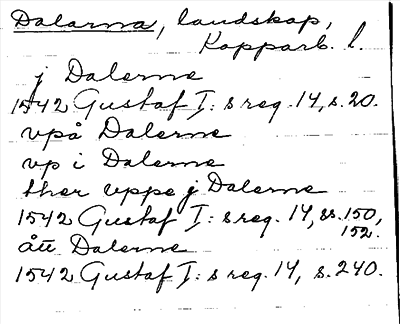 Dalarna, landskap,
Kopparb. l.
j Dalerne
1542 Gustaf I:s reg. 14, s. 20.
vpå Dalerne
vp i Dalerne
ther vppe j Dalerne
1542 Gustaf I:s reg. 14, ss. 150,
152.
ått Dalerne
1542 Gustaf I:s reg. 14, s. 240.